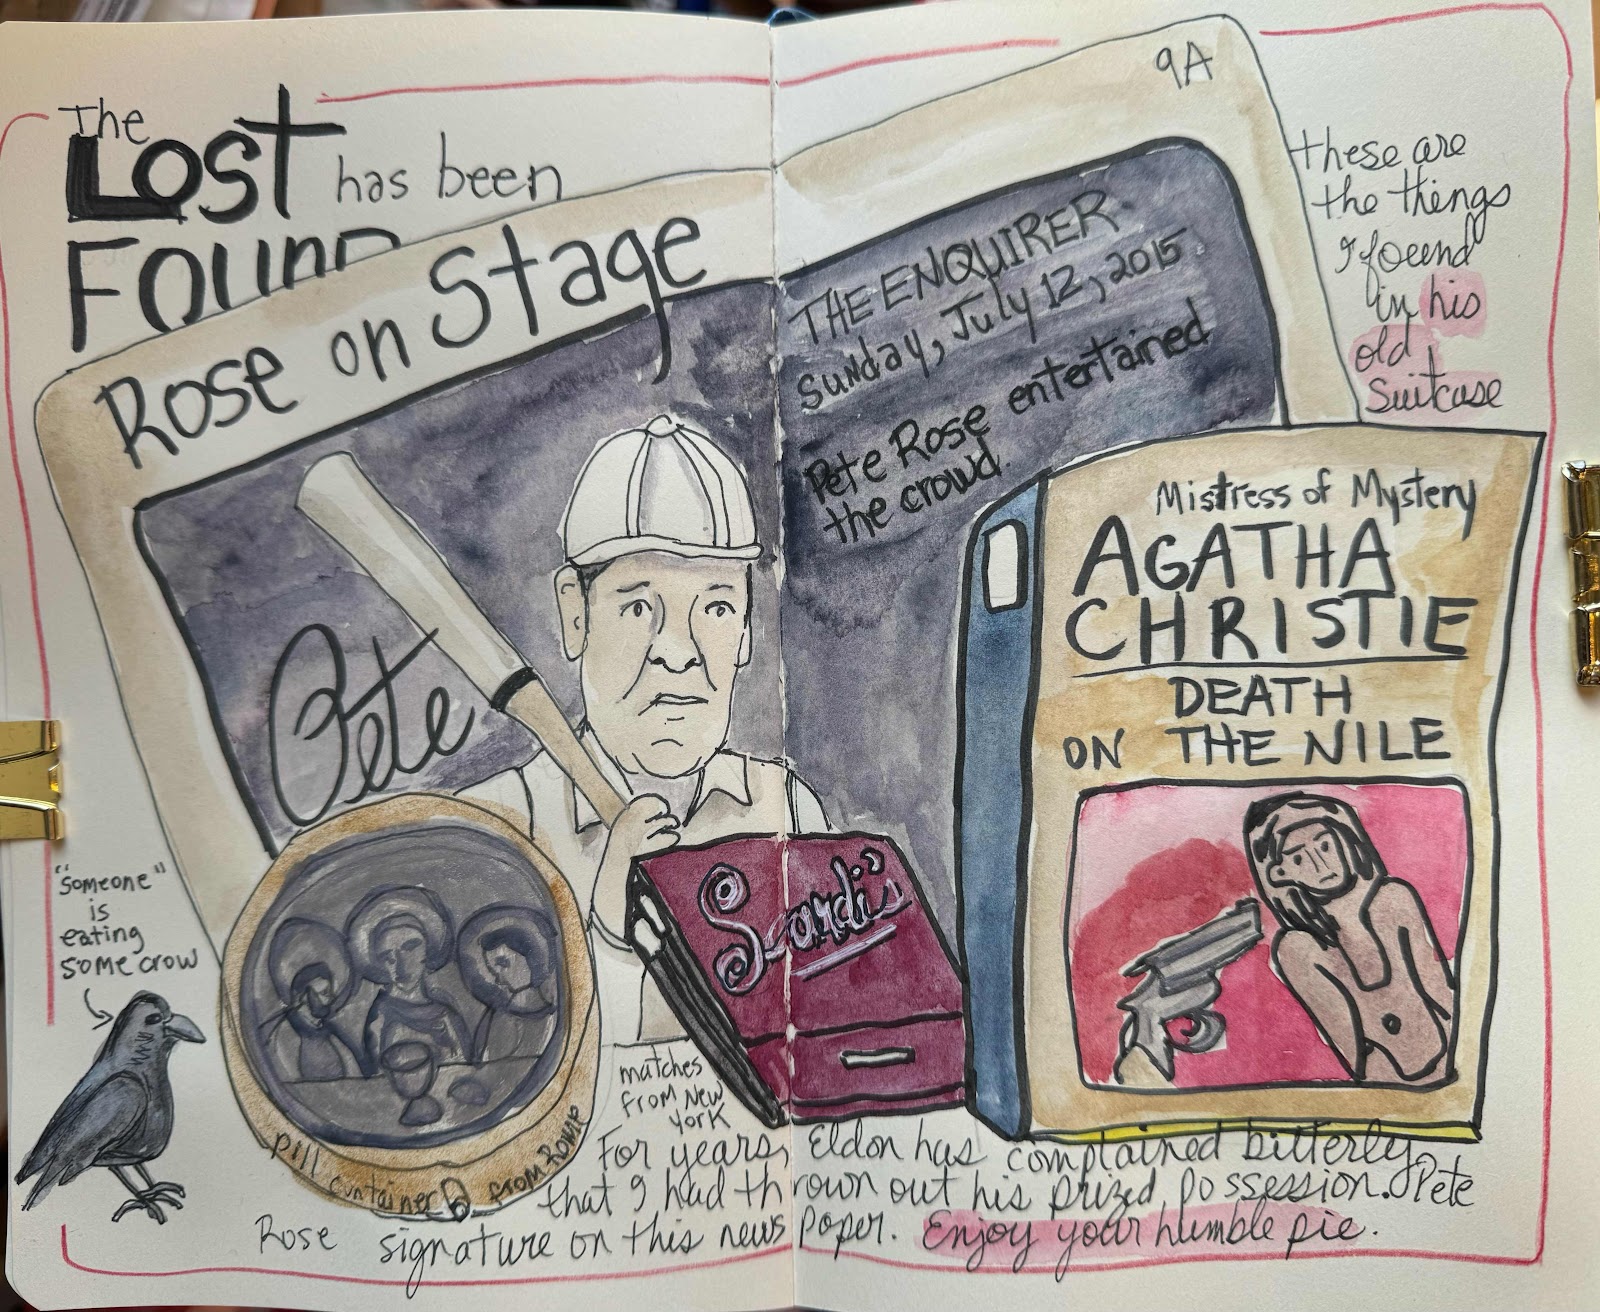 The
LOST has been
FOUND
Rose on Stage
9A
THE ENQUIRER
Sunday, July 12, 2015
Pete Rose entertained
the crowd.
these are
the things
I found
in his
old
suitcase
Mistress of Mystery
AGATHA
CHRISTIE
DEATH
ON THE NILE
Pete
"someone"
is
eating
some crow
Sardi's
matches
from New
York
pill container from ROME
For years, Eldon has complained bitterly
that I had thrown out his prized possession. Pete
Rose signature on this newspaper. Enjoy your humble pie.